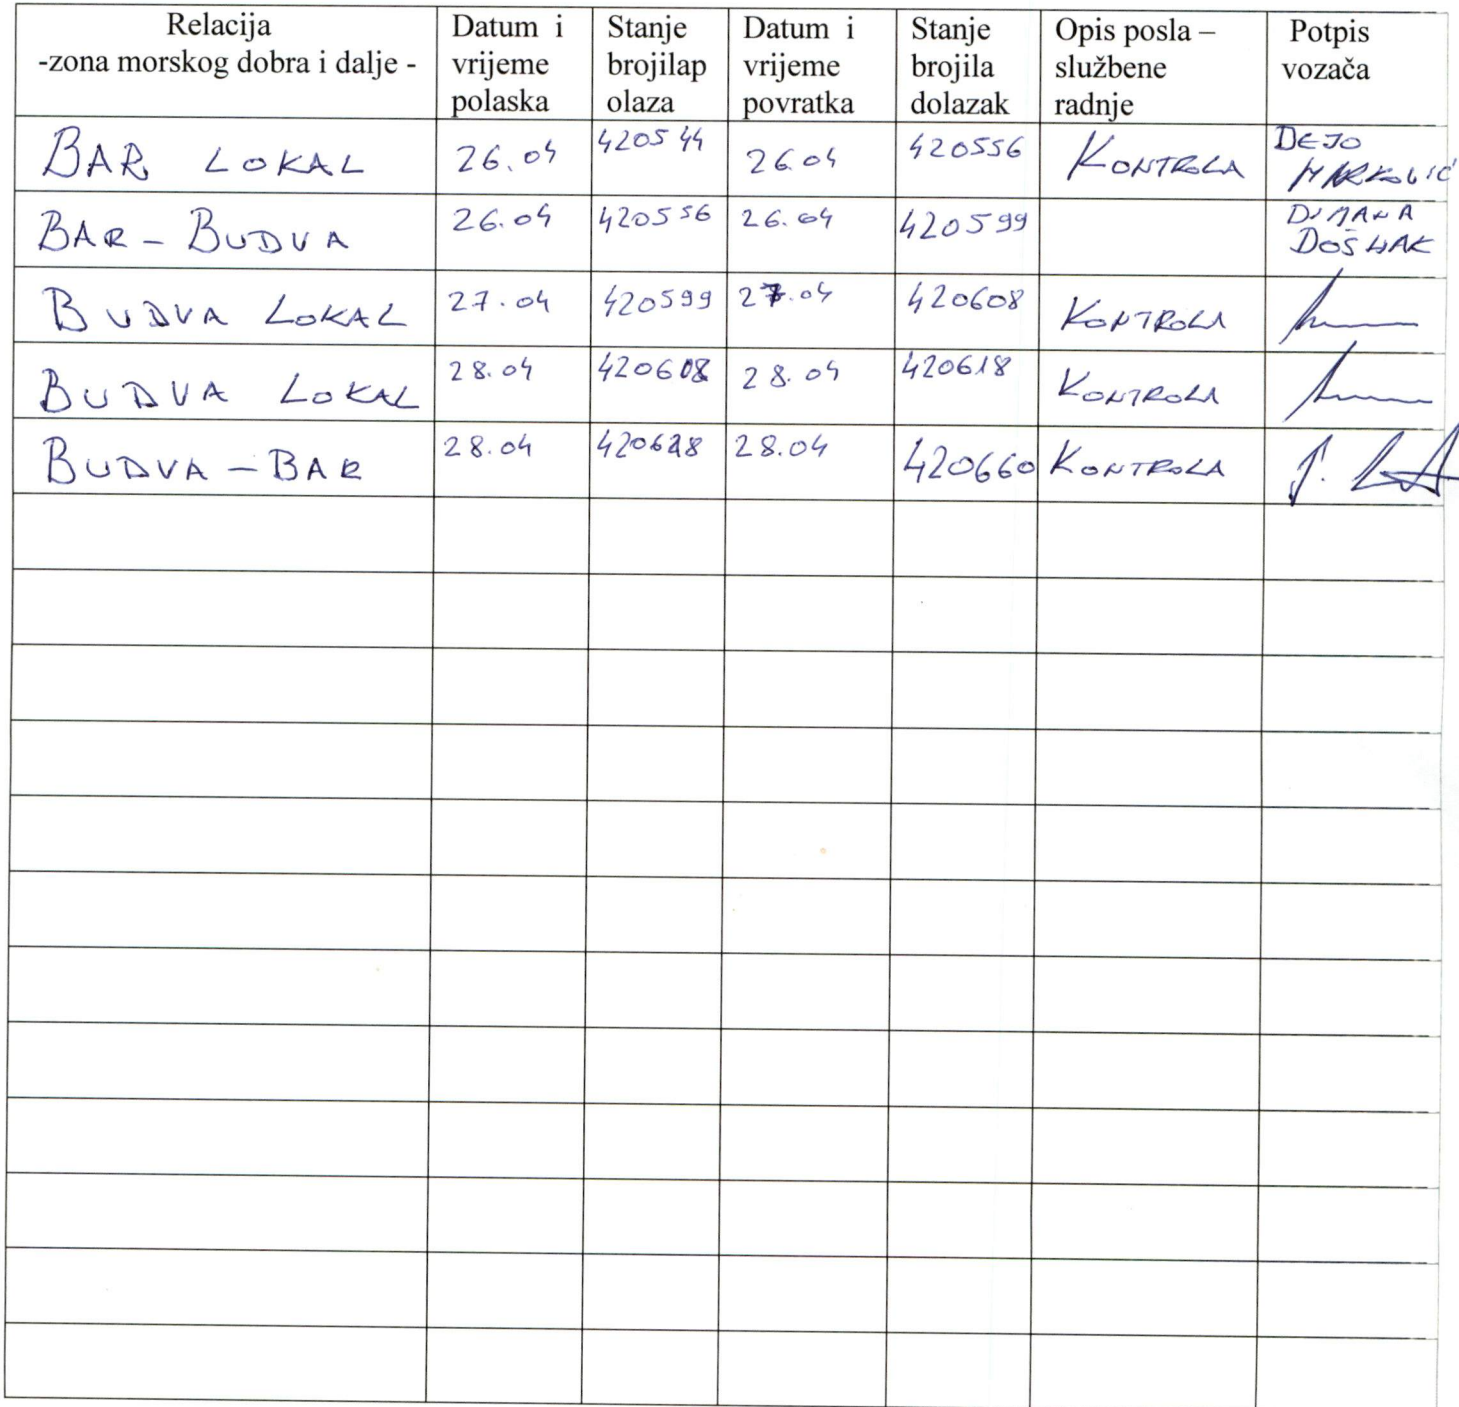 Relacija
-zona morskog dobra i dalje -
Datum i
vrijeme
polaska
Stanje
brojilap
olaza
Datum i
vrijeme
povratka
Stanje
brojila
dolazak
Opis posla –
službene
radnje
Potpis
vozača
BAR LOKAL 26.04 420544 26.04 420556 KONTROLA DEJO
MARKOVIĆ
BAR - BUDVA 26.04 420556 26.04 420599
BUDVA LOKAL 27.04 420599 27.04 420608 KONTROLA
BUDVA LOKAL 28.04 420608 28.04 420618 KONTROLA
BUDVA - BAR 28.04 28.04 420660 KONTROLA